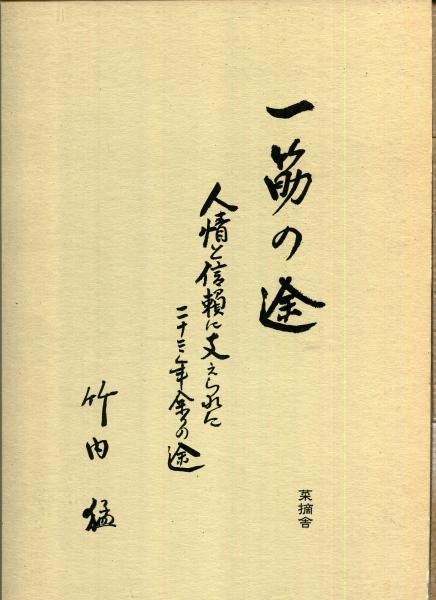 一筋の途
人情と信頼に支えられた
二十三年余の途
竹内 猛
菜摘舎